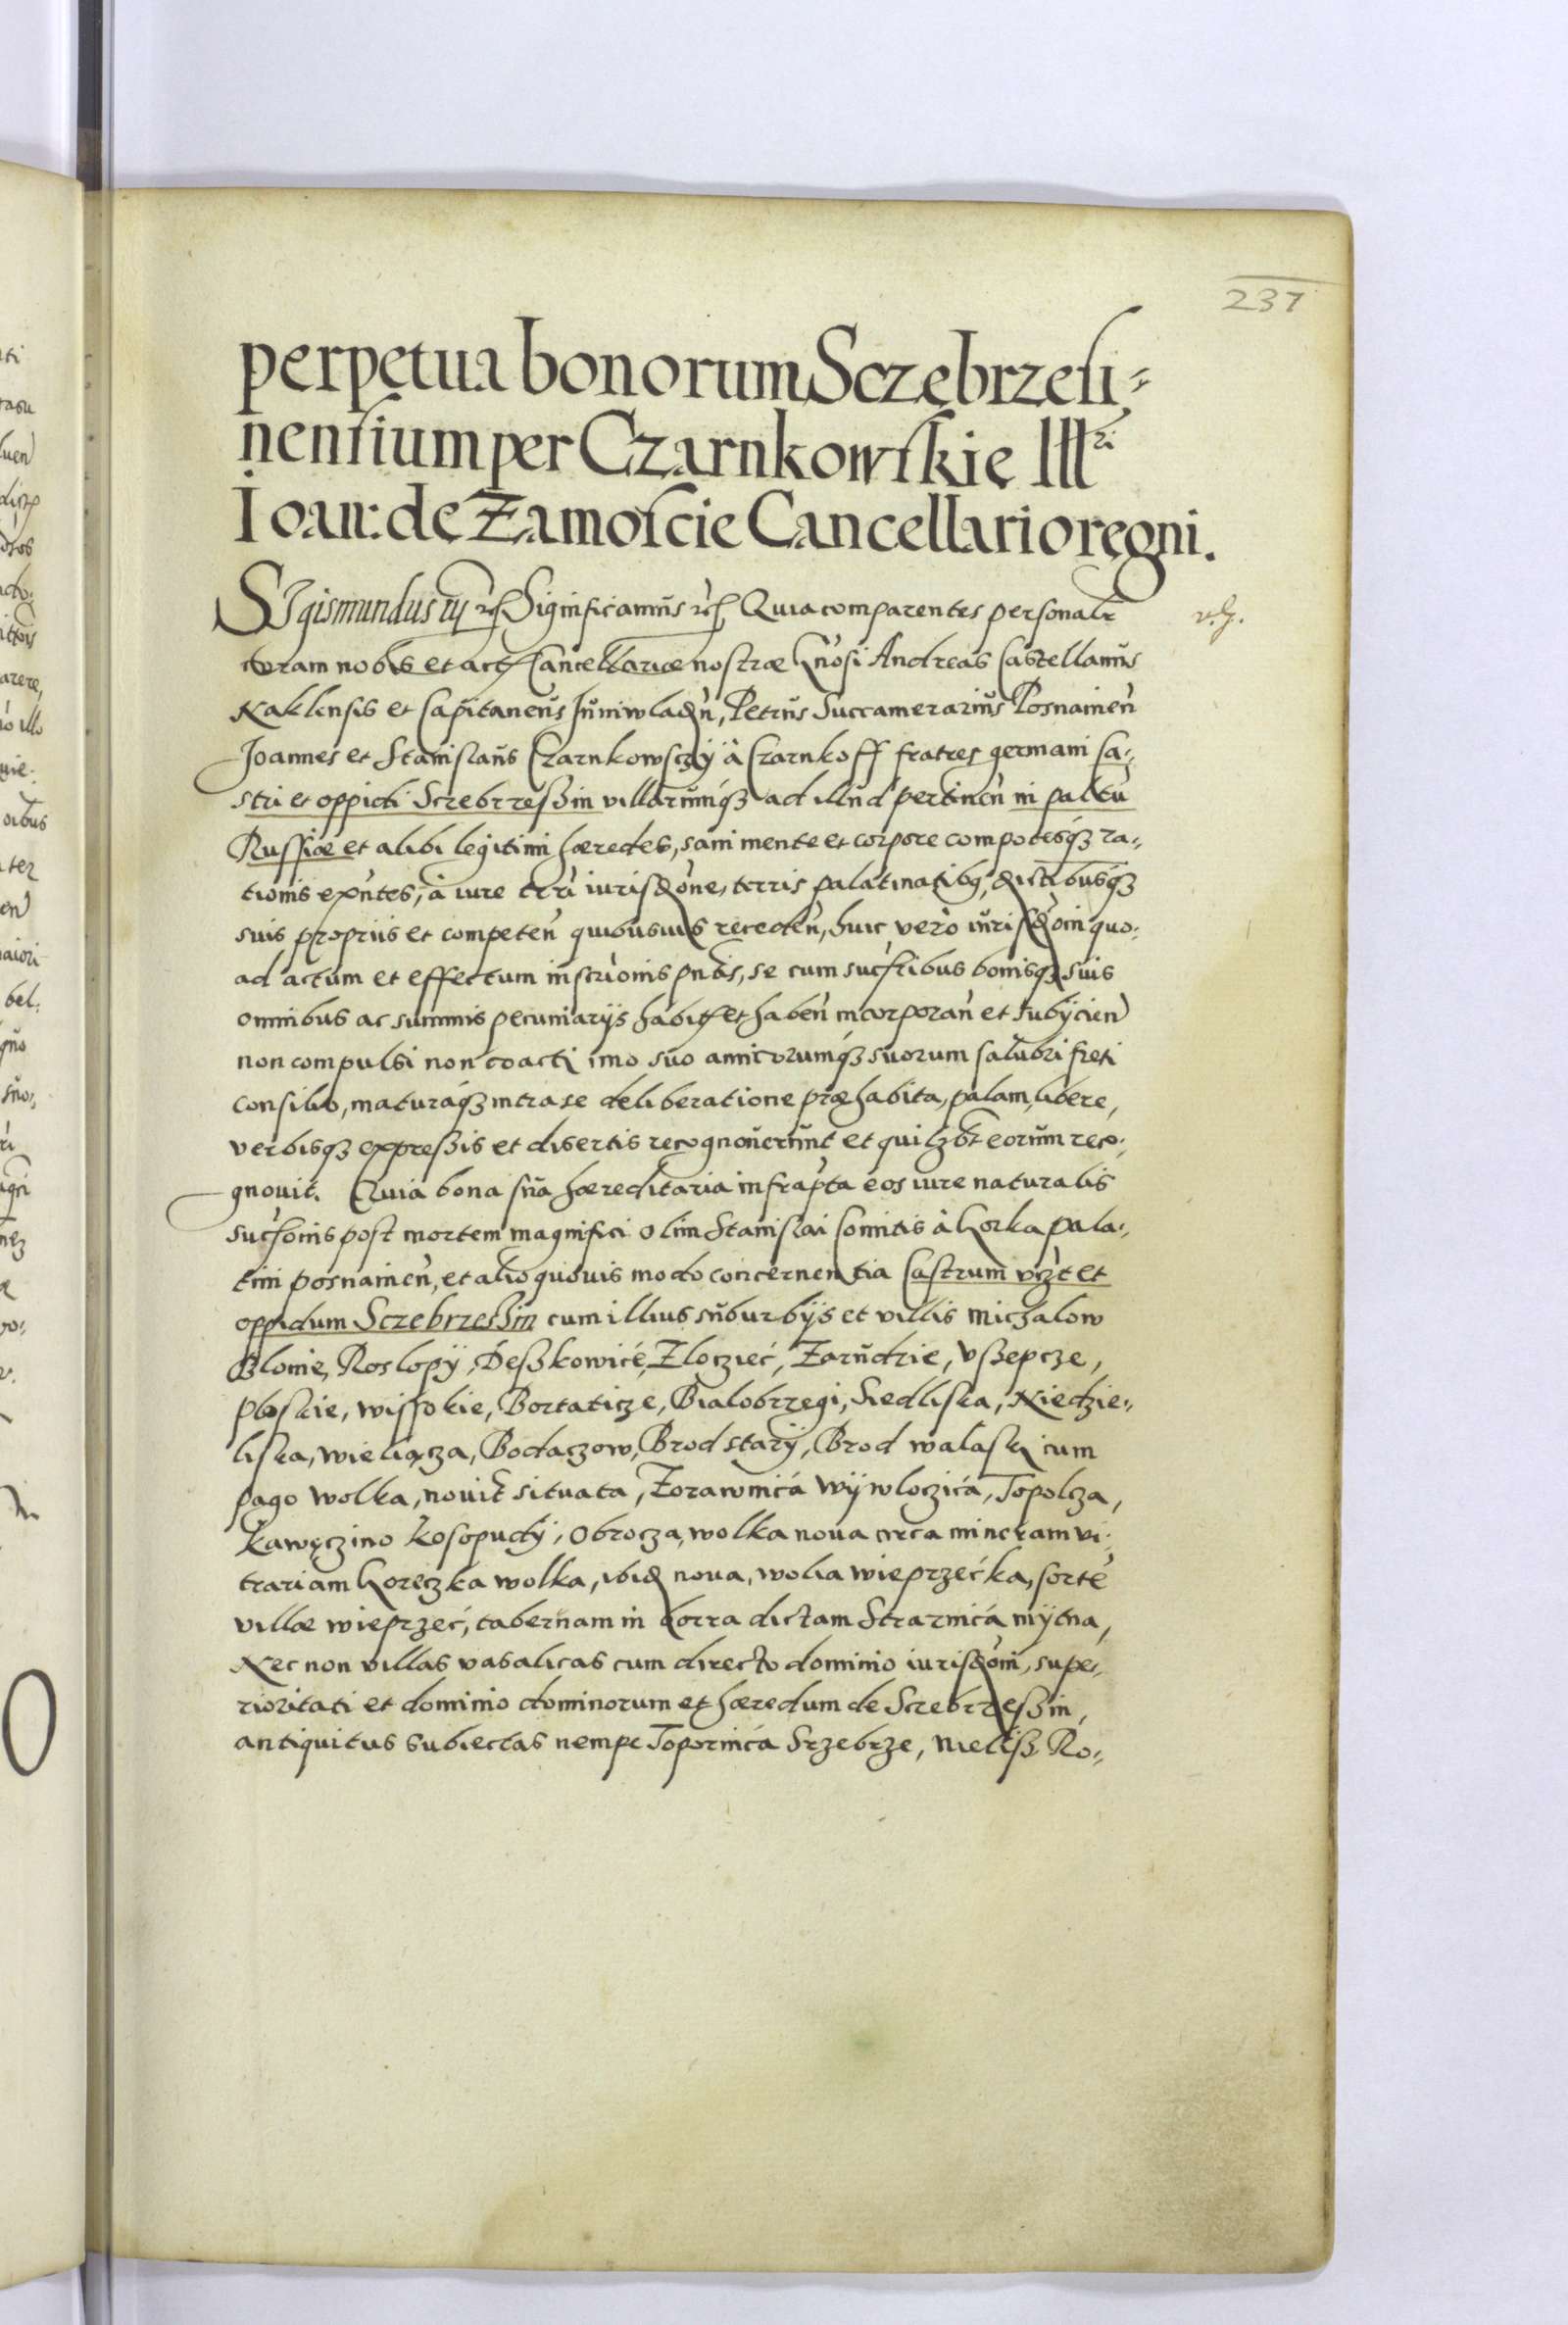 237
perpetua bonorum Sczębrzesi=
nensium per Czarnkowskie Illri
Ioan: de Zamoscie Cancellario regni.
SIgismundus iij etc Significamus etc Quia comparentes personalr
coram nobis et actis Cancellariæ nostræ Gnosi Andreas Castellanus
Naklensis et Capitaneus Juniwladn, Petrus Succamerarius Posnanien
Joannes et Stanislaus Czarnkowsczÿ à Czarnkoff fratres germani Ca-
stri et oppidi Sczebrzeßin villarumq3 ad illud pertinen in paltu
Russiæ et alibi legitimi hæredes, sani mente et corpore compotesq3 ra-
tionis exntes, à iure trri iurisdone, terris palatinatibq, districtibusq3
suis propriis et competen quibusuis receden, huic verò iurisdoni quo-
ad actum et effectum inscrionis pntis, se cum sucribus bonisq3 suis
omnibus ac summis pecuniarijs habitis et haben incorporan et subijcien
non compulsi non coacti imo suo amicorumq3 suorum salubri freti
consilio, maturaq3 intra se deliberatione præhabita, palam, libere,
verbisq3 expreßis et disertis recognouerunt et quilzbt eorum reco-
gnouit. Quia bona sua hæreditaria infrapta eos iure naturalis
sucsonis post mortem magnifici olim Stanislai Comitis à Gorka pala-
tini posnanien, et alio quouis modo concernentia Castrum vrzt et
oppidum Sczebrzeßin cum illius suburbijs et villis Michalow
Blonie, Roslopÿ, Deßkowice, Zloczieć, Zarudzie, Vßepcze,
Ploskie, Wissokie, Bortaticze, Bialobrzegi, Siedliska, Niedzie-
liska, Wieliącza, Bodaczow, Brod starÿ, Brod walaski cum
pago Wolka, nouit situata, Zorawnica Wÿwloczica, Topolcza,
Kawęczino Kosopudÿ, Obrocza, Wolka noua circa mineram vi-
trariam Goreczka wolka, ibid noua, Wolia wieprzecka, sorte
villæ Wieprzec, tabernam in Gorra dictam Straznica mÿtna,
Nec non villas vasalicas cum directo dominio iurisdoni, supe-
rioritati et dominio dominorum et hæredum de Sczebrzeßin,
antiquitus subiectas nempe Topornica Srzebrze, Mieliß Ro-